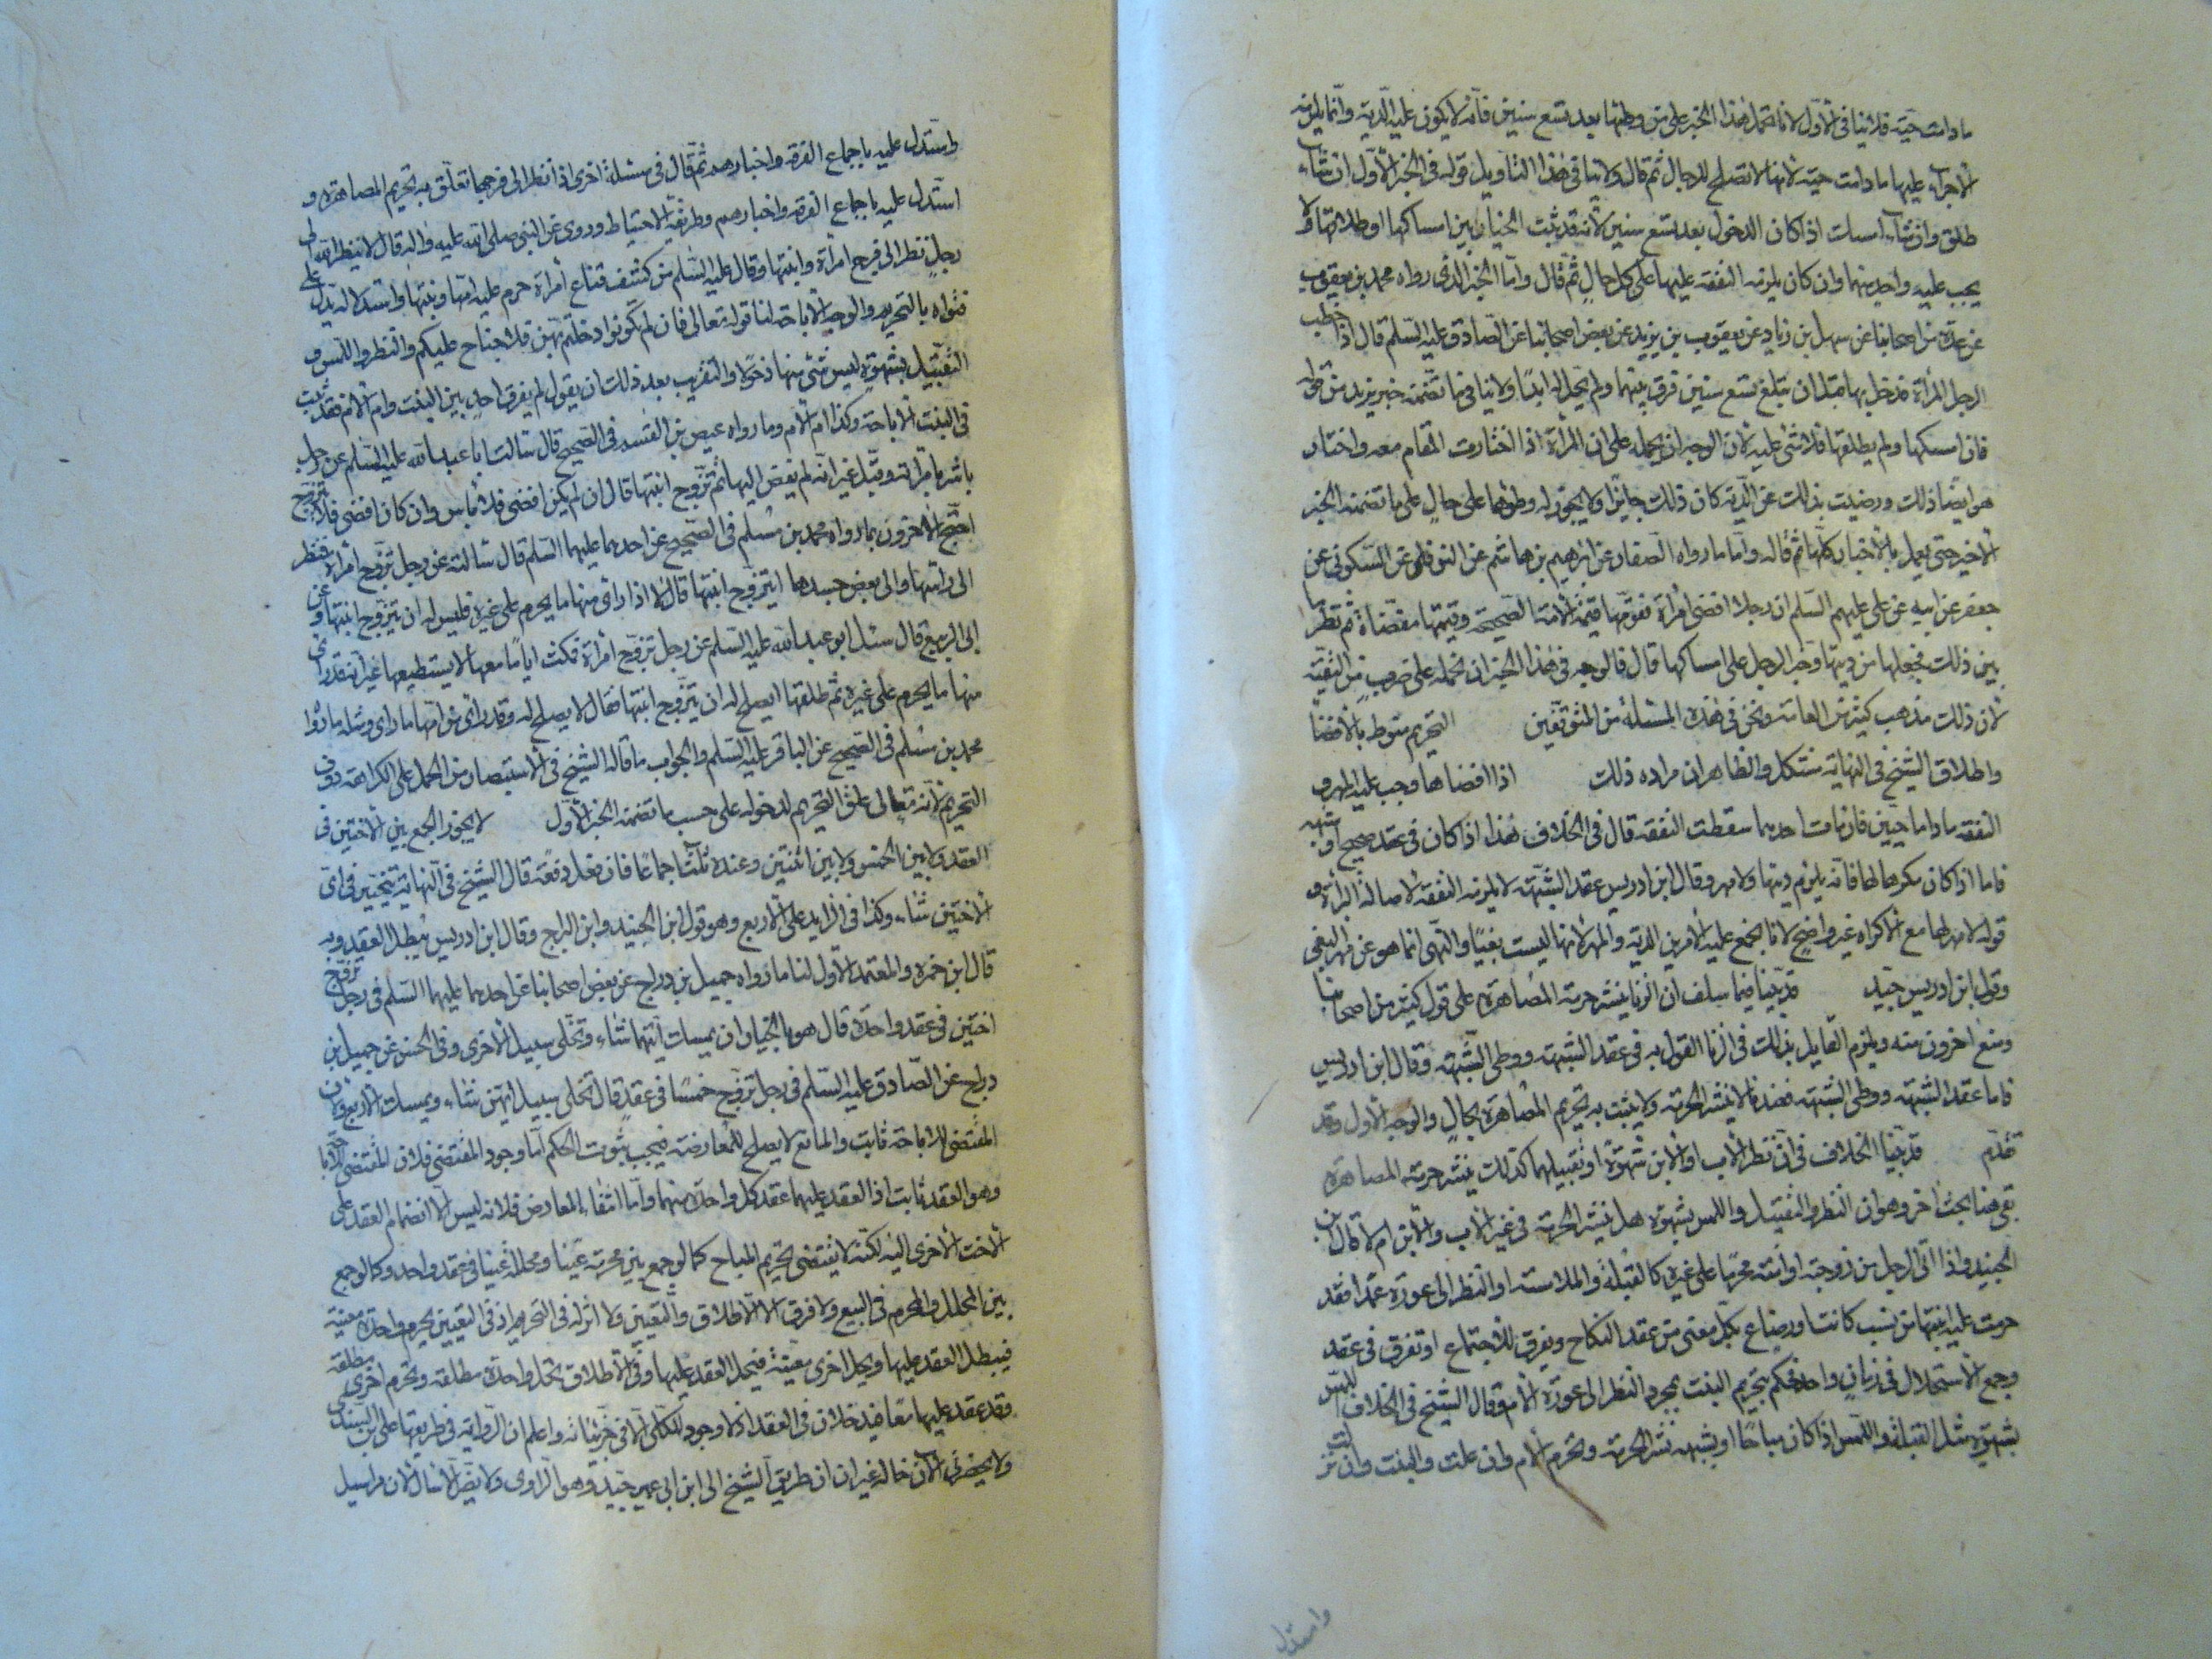 ما دامت حية فلا ينافي الاول لانا نحمل هذا الخبر على من وطئها بعد تسع سنين فانه لا يكون عليه الدية وانما يلزمه
الاجراء عليها ما دامت حية لانها لا تصلح للرجال ثم قال ولا ينافي هذا التاويل قوله في الخبر الاول ان شاء
طلق وان شاء امسك اذا كان الدخول بعد تسع سنين لانه قد ثبت الخيار بين امساكها او طلاقها ولا
يجب عليه واحد منهما وان كان يلزمه النفقة عليها على كل حال ثم قال واما الخبر الذي رواه محمد بن يعقوب
عن عدة من اصحابنا عن سهل بن زياد عن يعقوب بن يزيد عن بعض اصحابنا عن الصادق عليه السلم قال اذا خطب
الرجل المراة فدخل بها قبل ان تبلغ تسع سنين فرق بينهما ولم تحل له ابدا ولا ينافي ما تضمنه خبر بريد من قوله
فان امسكها ولم يطلقها فلا شئ عليه لان الوجه ان نحمله على ان المراة اذا اختارت المقام معه واختار
هو ايضا ذلك ورضيت بذلك عن الدية كان ذلك جايزا ولا يجوز له وطؤها على حال على ما تضمنه الخبر
الاخير حتى يعمل بالاخبار كلها ثم قال واما ما رواه الصفار عن ابرهيم بن هاشم عن النوفلي عن السكوني عن
جعفر عن ابيه عن علي عليهم السلم ان رجلا افضى امراة فقومها قيمة الامة الصحيحة وقيمتها مفضاة ثم نظر ما
بين ذلك فجعلها من ديتها وجبر الرجل على امساكها قال فالوجه في هذا الخبر ان نحمله على ضرب من التقية
لان ذلك مذهب كثير من العامة ونحن في هذه المسئلة من المتوقفين التحريم منوط بالافضا
واطلاق الشيخ في النهاية مشكل والظاهر ان مراده ذلك اذا افضاها وجب عليه المهر و
النفقة ما داما حيين فان مات احدهما سقطت النفقة قال في الخلاف هذا اذا كان في عقد صحيح او شبهه
فاما اذا كان مكرها لها فانه يلزم ديتها ولا مهر وقال ابن ادريس عقد الشبهة لا يلزمه النفقة لاصالة البراة و
قوله لا مهر لها مع الاكراه غير واضح لانا نجمع عليه الامرين الدية والمهر لانها ليست بغيا والنهى انما هو عن مهر البغى
وقول ابن ادريس جيد قد بينا فيما سلف ان الزنا ينشر حرمة المصاهرة على قول كثير من اصحابنا
ومنع اخرون منه ويلزم القايل بذلك في الزنا القول به في عقد الشبهة ووطى الشبهة وقال ابن ادريس
فاما عقد الشبهة ووطى الشبهة فعندنا لا ينشر الحرمة ولا يثبت به تحريم المصاهرة بحال والوجه الاول وقد
تقدم قد بينا الخلاف في ان نظر الاب او الابن بشهوة او تقبيلهما كذلك ينشر حرمة المصاهرة
بقى هنا بحث اخر وهو ان النظر والتقبيل واللمس بشهوة هل ينشر الحرمة في غير الاب والابن ام لا قال ابن
الجنيد واذا اتى الرجل من زوجته او امته محرما على غيره كالقبلة والملامسة او النظر الى عورة عمدا فقد
حرمت عليه ابنتها من نسب كانت او رضاع بكل معنى من عقد النكاح ويفرق للاجتماع او تفرق في عقد
وجمع الاستحلال في زمان واحد فحكم بتحريم البنت بمجرد النظر الى عورة الام وقال الشيخ في الخلاف اللمس
بشهوة مثل القبلة واللمس اذا كان مباحا او بشبهه ينشر الحرمة وتحرم الام وان علت والبنت وان نزلت
واستدل
واستدل عليه باجماع الفرقة واخبارهم ثم قال في مسئلة اخرى اذا نظر الى فرجها تعلق به تحريم المصاهرة و
استدل عليه باجماع الفرقة واخبارهم وطريقة الاحتياط وروى عن النبي صلى الله عليه واله قال لا ينظر الله الى
رجل نظر الى فرج امراة وابنتها وقال عليه السلم من كشف قناع امراة حرم عليه امها وبنتها واستدلاله يدل على
فتواه بالتحريم والوجه الاباحة لنا قوله تعالى فان لم تكونوا دخلتم بهن فلا جناح عليكم والنظر واللمس و
التقبيل بشهوة ليس شئ منها دخولا والتقريب بعد ذلك ان يقول لم يفرق احد بين البنت وام الام فقد ثبت
في البنت الاباحة وكذا ام الام وما رواه عيص بن القسم في الصحيح قال سالت ابا عبد الله عليه السلم عن رجل
باشر امراته وقبل غير انه لم يفض اليها ثم تزوج ابنتها قال ان لم يكن افضى فلا باس وان كان افضى فلا يتزوج
احتج الاخرون بما رواه محمد بن مسلم في الصحيح عن احدهما عليهما السلم قال سالته عن رجل تزوج امراة فنظر
الى راسها والى بعض جسدها ايتزوج ابنتها قال لا اذا راى منها ما يحرم على غيره فليس له ان يتزوج ابنتها وعن
ابي الربيع قال سئل ابو عبد الله عليه السلم عن رجل تزوج امراة فمكث اياما معها لا يستطيعها غير انه قد راى
منها ما يحرم على غيره ثم طلقها ايصلح له ان يتزوج ابنتها فقال لا يصلح له وقد راى من امها ما راى ومثله ما رواه
محمد بن مسلم في الصحيح عن الباقر عليه السلم والجواب ما قاله الشيخ في الاستبصار من الحمل على الكراهة دون
التحريم لانه تعالى علق التحريم لدخوله على حسب ما تضمنه الخبر الاول لا يجوز الجمع بين الاختين في
العقد ولا بين الخمس ولا بين اثنتين وعنده ثلث اجماعا فان فعل دفعة قال الشيخ في النهاية يتخير في اى
الاختين شاء وكذا في الزايد على الاربع وهو قول ابن الجنيد وابن البراج وقال ابن ادريس يبطل العقد وبه
قال ابن حمزه والمعتمد الاول لنا ما رواه جميل بن دراج عن بعض اصحابنا عن احدهما عليهما السلم في رجل تزوج
اختين في عقد واحد قال هو بالخيار ان يمسك ايتهما شاء وتخلى سبيل الاخرى وفي الحسن عن جميل بن
دراج عن الصادق عليه السلم في رجل تزوج خمسا في عقد قال تخلى سبيل ايتهن شاء ويمسك الاربع ولان
المقتضى للاباحة ثابت والمانع لا يصلح للمعارضة فيجب ثبوت الحكم اما وجود المقتضى فلان المقتضى للاباحة
وهو العقد ثابت اذ العقد عليهما عقد كل واحدة منهما واما انتفاء المعارض فلانه ليس الا انضمام العقد على
الاخت الاخرى اليه لكنه لا يقتضى تحريم المباح كما لو جمع بين محرمة عينا ومحللة عينا في عقد واحد وكما لو جمع
بين المحلل والمحرم في البيع ولا فرق الا الاطلاق والتعيين ولا اثر له في التحريم اذ في التعيين تحريم واحدة معينة
فيبطل العقد عليها ويحل اخرى معينة فيحل العقد عليها وفي الاطلاق تحل واحدة مطلقة وتحرم اخرى مطلقة
وقد عقد عليهما معا فيدخلان في العقد اذ لا وجود للكلى الا في جزئياته واعلم ان الرواية في طريقها على بن السندى
ولا يحضرني الان حاله غير ان طريق الشيخ الى ابن ابي عمير جيد وهو الراوى ولا يضر الارسال لان مراسيل